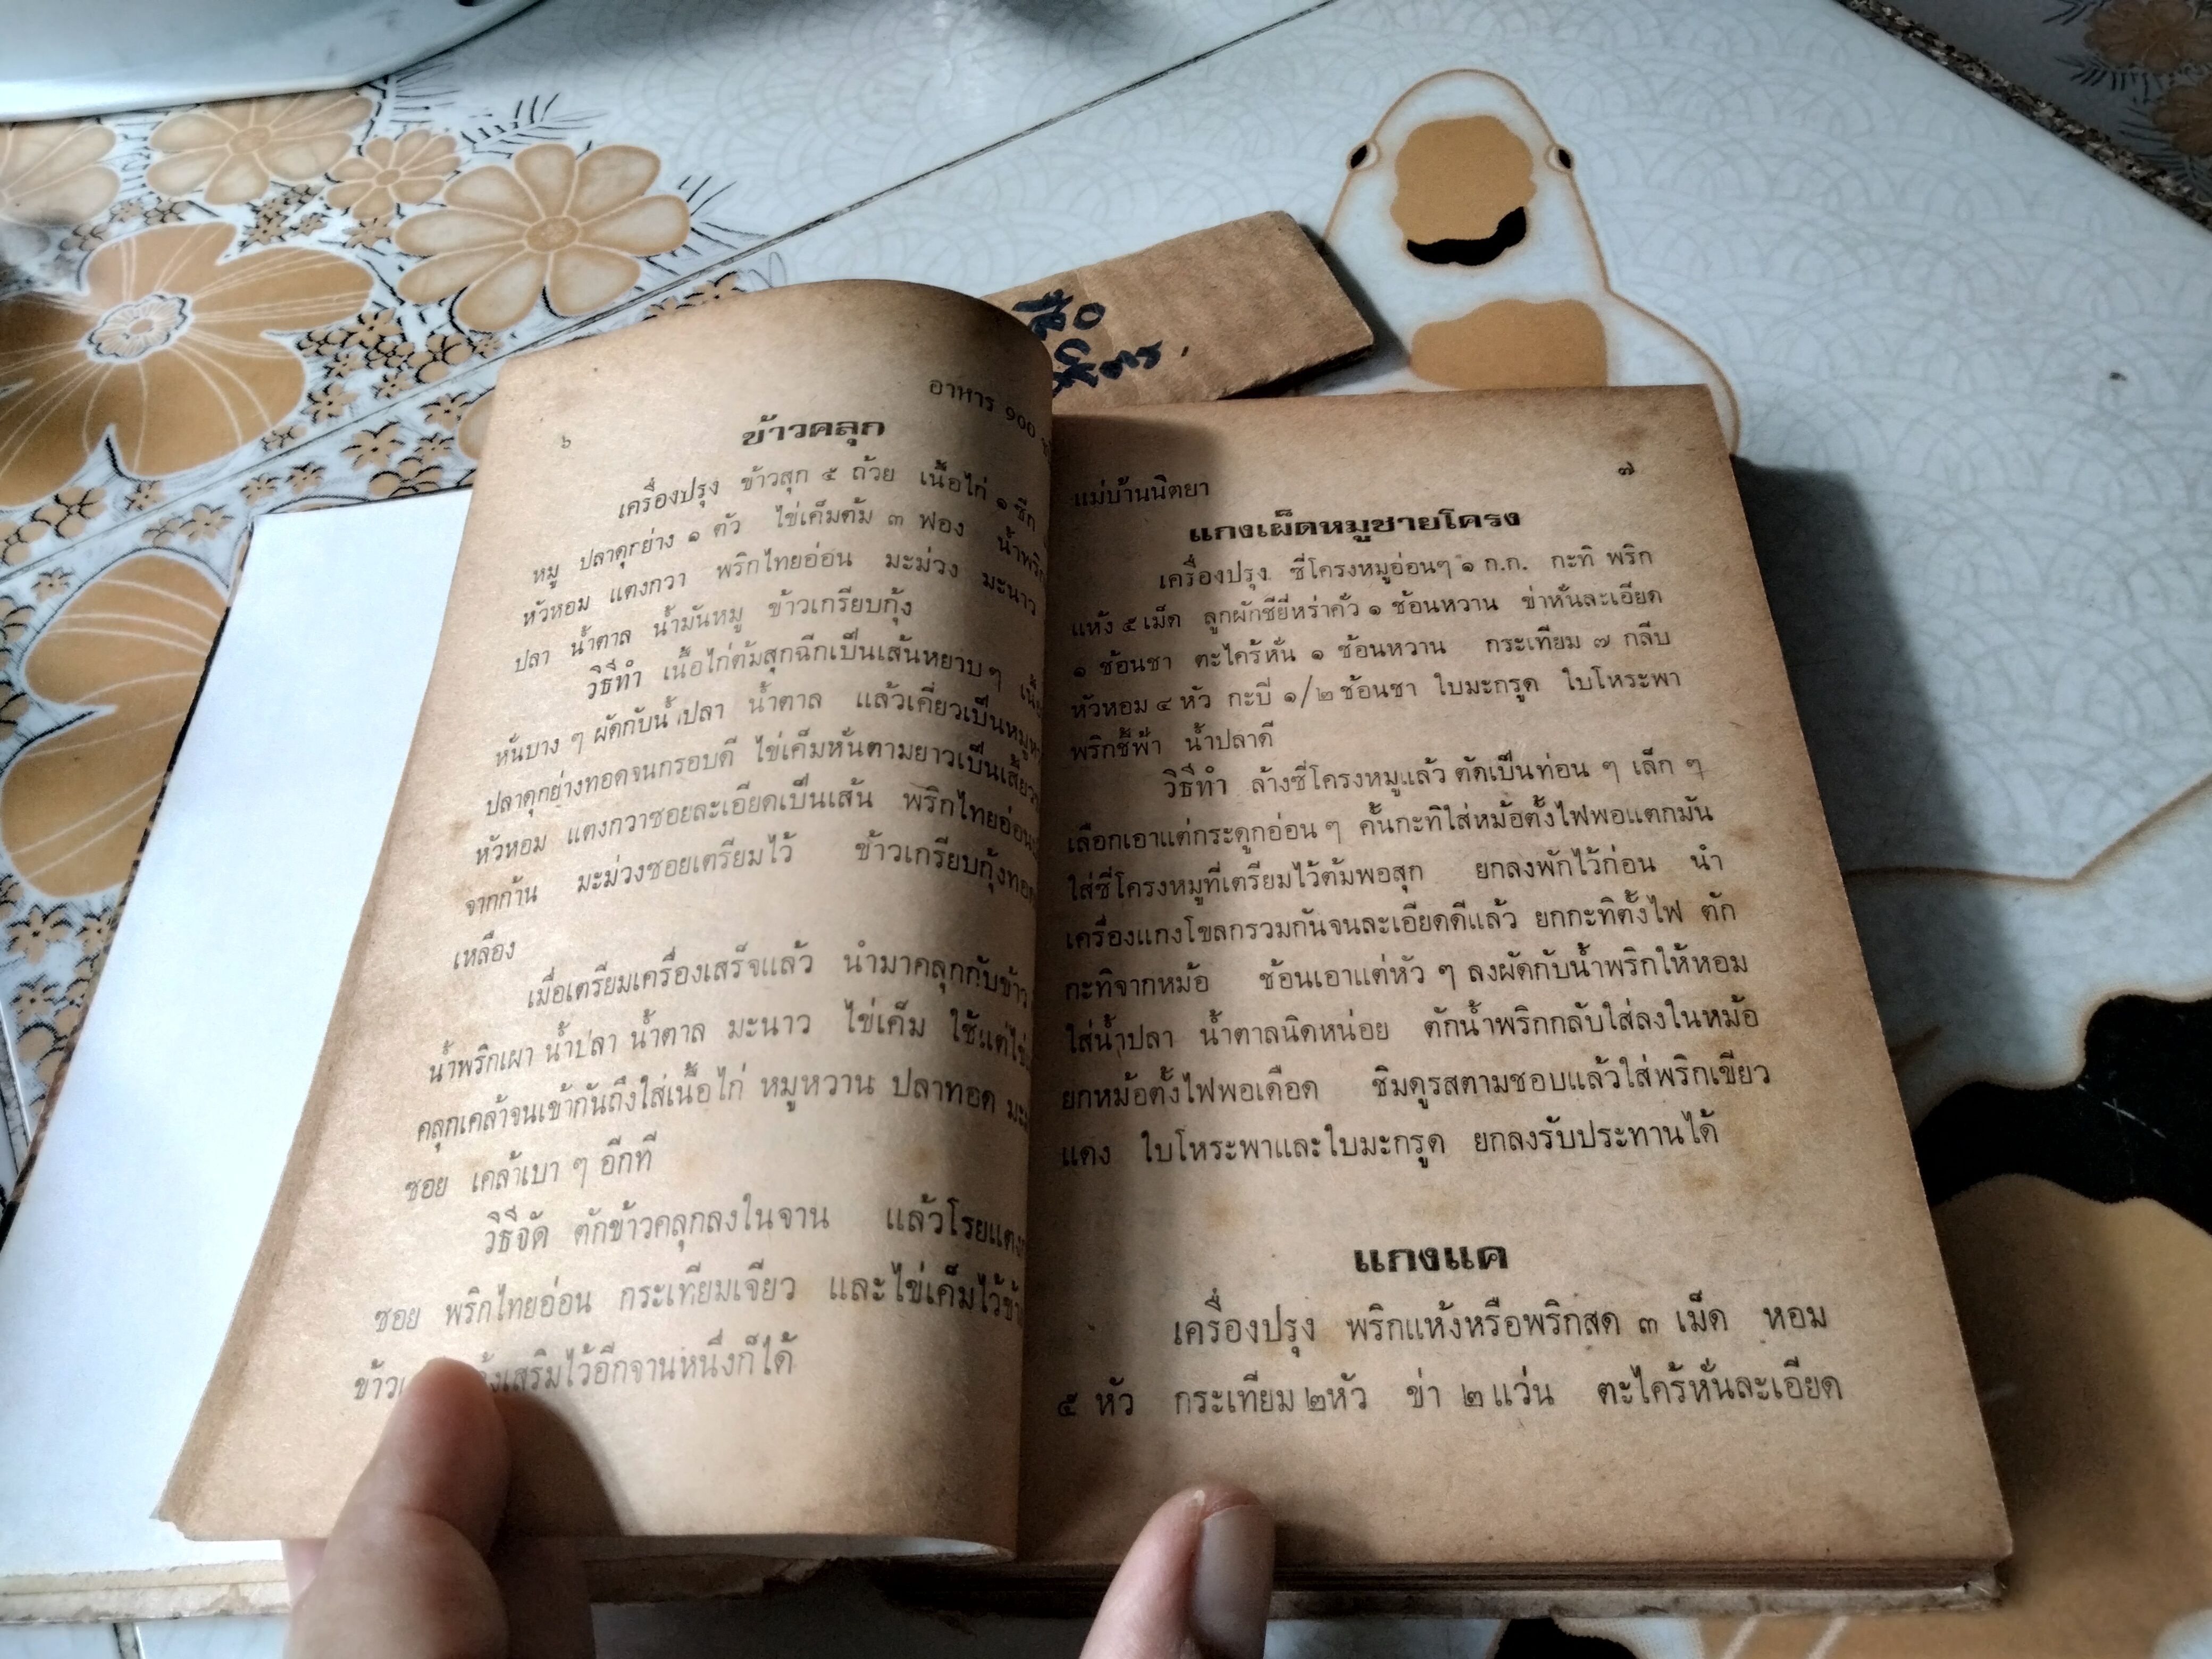 อาหาร ๑๐๐
๖
ข้าวคลุก
เครื่องปรุง ข้าวสุก ๕ ถ้วย เนื้อไก่ ๑ ซีก
หมู ปลาดุกย่าง ๑ ตัว ไข่เค็มต้ม ๓ ฟอง น้ำพริก
หัวหอม แตงกวา พริกไทยอ่อน มะม่วง มะนาว
ปลา น้ำตาล น้ำมันหมู ข้าวเกรียบกุ้ง
วิธีทำ เนื้อไก่ต้มสุกฉีกเป็นเส้นหยาบๆ
หั่นบาง ๆ ผัดกับน้ำปลา น้ำตาล แล้วเคี่ยวเป็นหมู
ปลาดุกย่างทอดจนกรอบดี ไข่เค็มหั่นตามยาวเป็นเสี้ยว
หัวหอม แตงกวาซอยละเอียดเป็นเส้น พริกไทยอ่อน
จากก้าน มะม่วงซอยเตรียมไว้ ข้าวเกรียบกุ้งทอด
เหลือง
เมื่อเตรียมเครื่องเสร็จแล้ว นำมาคลุกกับข้าว
น้ำพริกเผา น้ำปลา น้ำตาล มะนาว ไข่เค็ม ใช้แต่
คลุกเคล้าจนเข้ากันถึงใส่เนื้อไก่ หมูหวาน ปลาทอด
ซอย เคล้าเบา ๆ อีกที
วิธีจัด ตักข้าวคลุกลงในจาน แล้วโรย
ซอย พริกไทยอ่อน กระเทียมเจียว และไข่เค็มไว้
เสริมไว้อีกจานหนึ่งก็ได้
แม่บ้านนิตยา
๗
แกงเผ็ดหมูชายโครง
เครื่องปรุง ซี่โครงหมูอ่อนๆ ๑ ก.ก. กะทิ พริก
แห้ง ๕ เม็ด ลูกผักชียี่หร่าคั่ว ๑ ช้อนหวาน ข่าหั่นละเอียด
๑ ช้อนชา ตะไคร้หั่น ๑ ช้อนหวาน กระเทียม ๗ กลีบ
หัวหอม ๔ หัว กะปี ๑/๒ ช้อนชา ใบมะกรูด ใบโหระพา
พริกชี้ฟ้า น้ำปลาดี
วิธีทำ ล้างซี่โครงหมูแล้ว ตัดเป็นท่อน ๆ เล็ก ๆ
เลือกเอาแต่กระดูกอ่อน ๆ คั้นกะทิใส่หม้อตั้งไฟพอแตกมัน
ใส่ซี่โครงหมูที่เตรียมไว้ต้มพอสุก ยกลงพักไว้ก่อน นำ
เครื่องแกงโขลกรวมกันจนละเอียดดีแล้ว ยกกะทิตั้งไฟ ตัก
กะทิจากหม้อ ช้อนเอาแต่หัว ๆ ลงผัดกับน้ำพริกให้หอม
ใส่น้ำปลา น้ำตาลนิดหน่อย ตักน้ำพริกกลับใส่ลงในหม้อ
ยกหม้อตั้งไฟพอเดือด ชิมดูรสตามชอบแล้วใส่พริกเขียว
แดง ใบโหระพาและใบมะกรูด ยกลงรับประทานได้
แกงแค
เครื่องปรุง พริกแห้งหรือพริกสด ๓ เม็ด หอม
๕ หัว กระเทียม ๒หัว ข่า ๒ แว่น ตะไคร้หั่นละเอียด